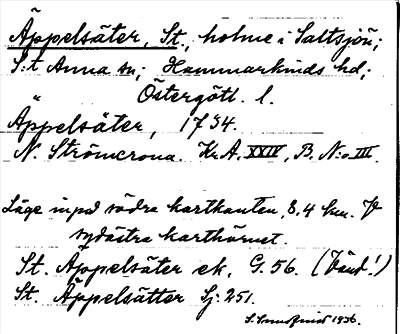 Äppelsäter, St., holme i Saltsjön;
S:t Anna sn; Hammarkinds hd;
Östergötl. l.
Äppelsäter, 1734.
N. Strömcrona. Kr.A. XXIV, B. N:o III.
Läge inpå södra kartkanten, 8,4 km. fr
sydöstra karthörnet.
St. Äppelsäter ek. G. 56. (Vänd!)
St. Äppelsätter Sj: 251.
1936.